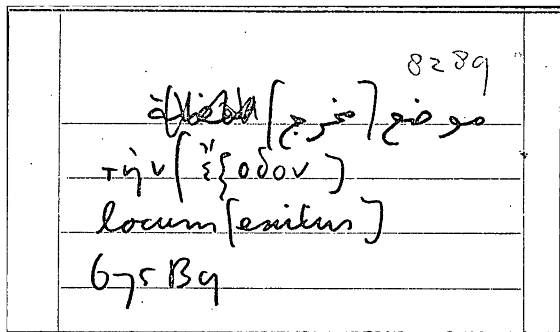 8289
موضع [مخرج]
τὴν (ἔξοδον)
locum [exitus]
675 B9